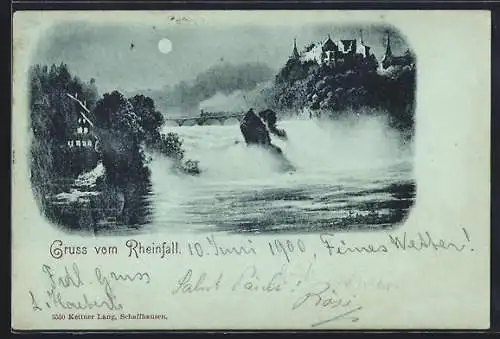 Gruss vom Rheinfall. 10. Juni 1900, Feines Wetter!
Frdl. Gruss Salut
Rosi
5550 Kettner Lang, Schaffhausen.